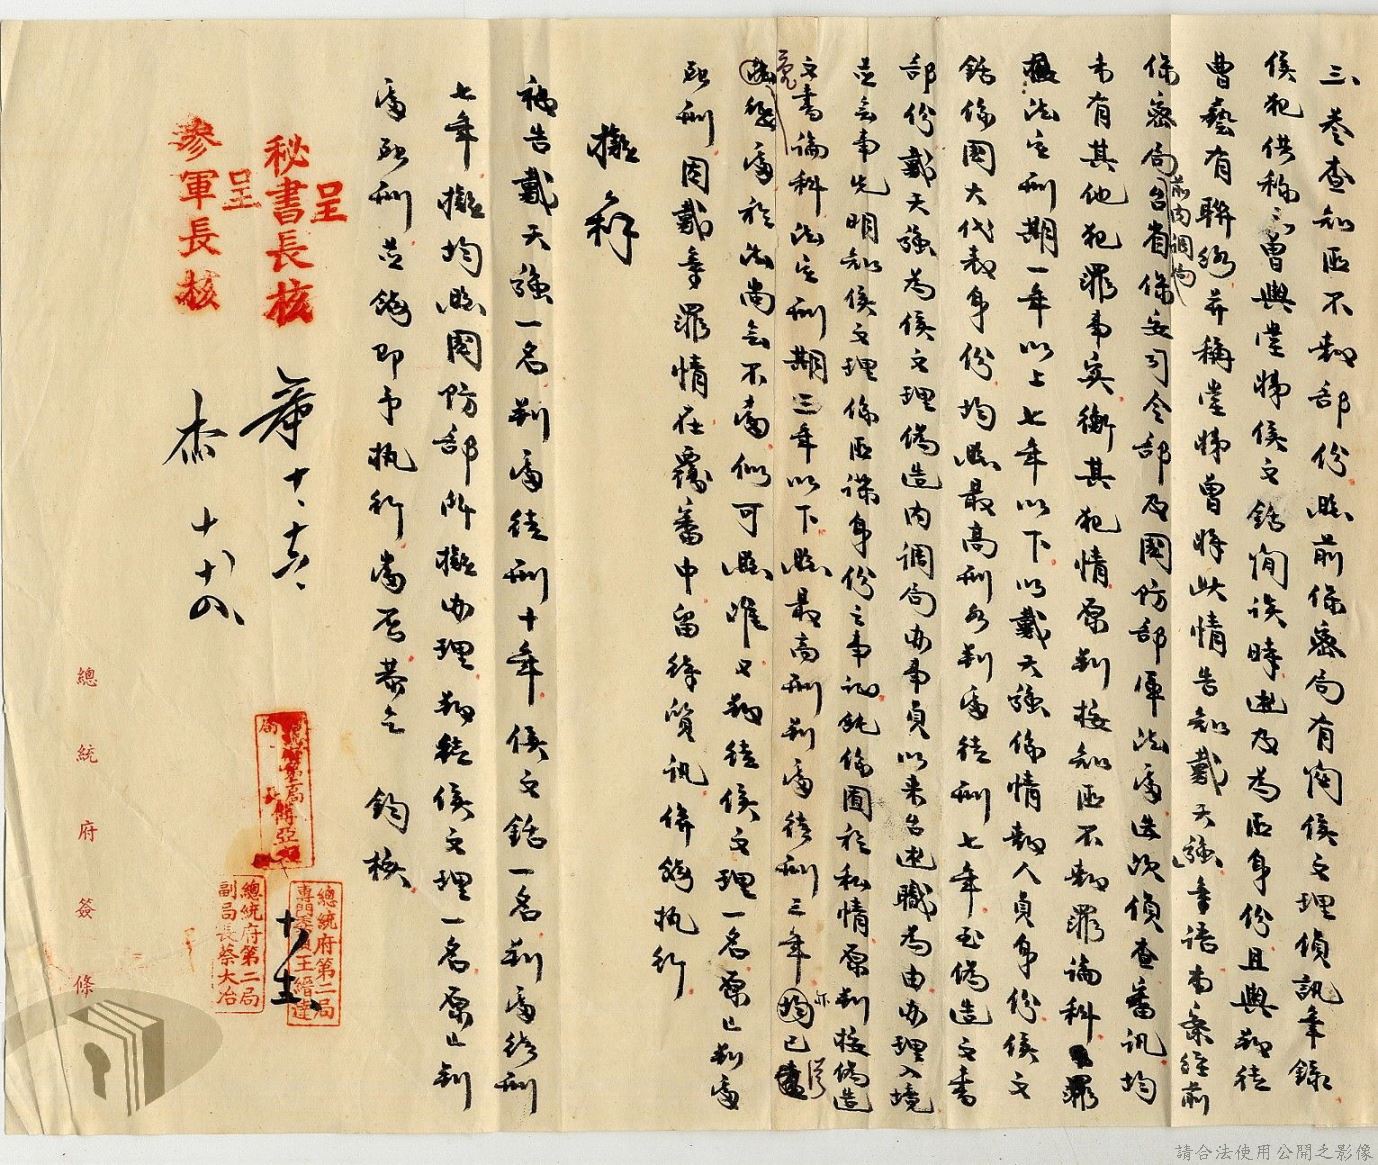 三、卷查知匪不報部份照前保密局有關侯文理偵訊筆錄
侯犯供稱之曾與堂姊侯文鋙詢談時述及為匪身份且與郭德
曹藝有聯絡並稱堂姊曾將此情告知戴天強等語本案經前
保密局前內調局台省保安司令部及國防部軍法處迭次偵查審訊均
未有其他犯罪事實衡其犯情原判按知匪不報罪論科罪
法定刑期一年以上七年以下以戴天強係情報人員身份侯文
鋙係國大代表身份均照最高刑各判處徒刑七年至偽造文書
部份戴天強為侯文理偽造內調局辦事員以來台述職為由辦理入境
並無事先明知侯文理係匪諜身份之事證純係囿於私情原判按偽造
文書論科法定刑期三年以下照最高刑判處徒刑三年均已
從重處於法尚無不當似可照准又郭德侯文理一名原已判處
死刑因戴等罪情在覆審中留待質訊併將執行
擬辦
被告戴天強一名判處徒刑十年侯文鋙一名判處徒刑
七年擬均照國防部所擬辦理郭德侯文理一名原已判
處死刑並飭即予執行當否恭乞 鈞核
呈
秘書長核
呈
參軍長核
十、十六、
杰 十、十八
總統府第二局專門委員王縉達
十、十五、
總統府第二局副局長蔡大冶
總統府簽條
請合法使用公開之影像